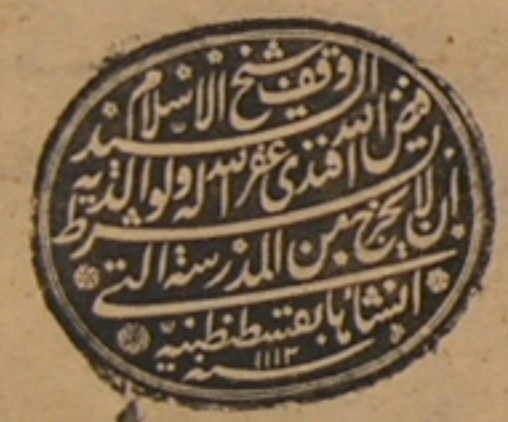 وقف شيخ الاسلام السيد
فيض الله افندى غفر الله له ولوالديه
بشرط ان لا يخرج من المدرسة التي
انشأها بقسطنطنيه
سنه ١١١٣